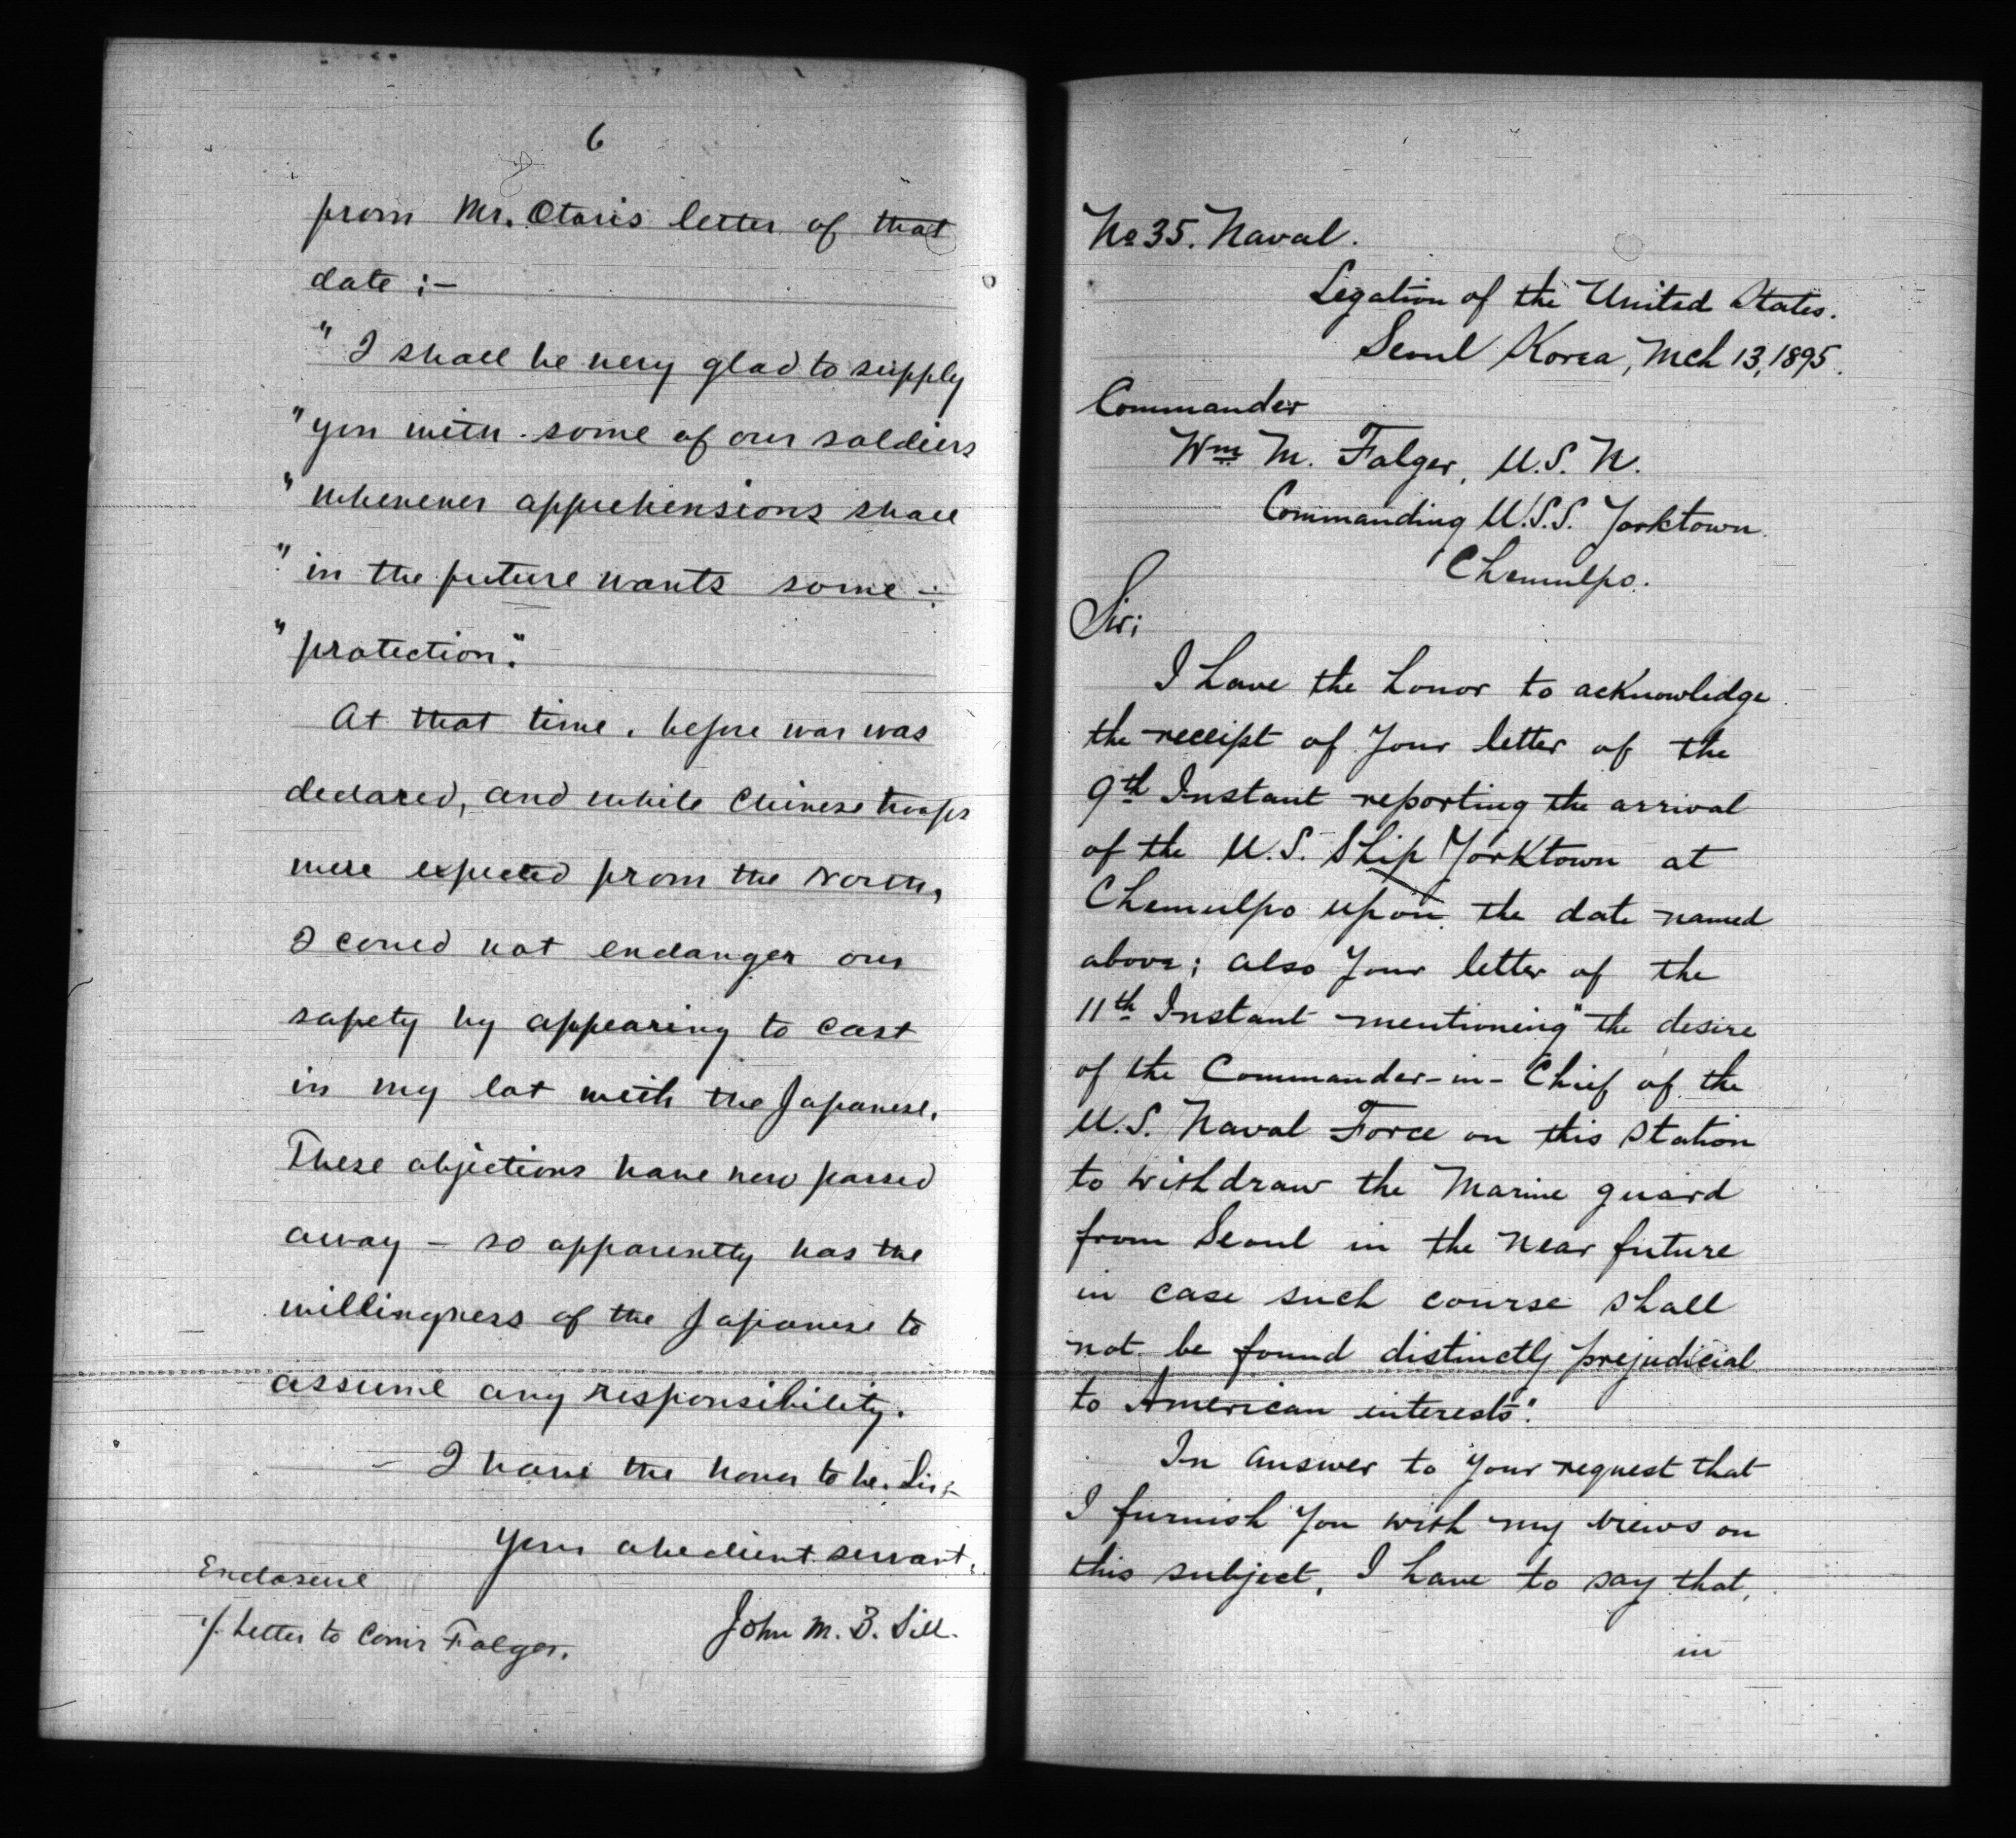 6
from Mr. Otori's letter of that
date :-
" I shall be very glad to supply
" you with some of our soldiers
" whenever apprehensions shall
" in the future wants some -
" protection."
At that time, before war was
declared, and while Chinese troops
were expected from the North,
I could not endanger our
safety by appearing to cast
in my lot with the Japanese.
These objections have now passed
away - so apparently has the
willingness of the Japanese to
assume any responsibility.
- I have the honor to be, Sir,
Your obedient servant,
John M. B. Sill.
Enclosure
1/ Letter to Com'r Folger.
No 35. Naval.
Legation of the United States.
Seoul Korea, Mch 13, 1895.
Commander
Wm M. Folger, U.S.N.
Commanding U.S.S. Yorktown.
Chemulpo.
Sir;
I have the honor to acknowledge
the receipt of Your letter of the
9th Instant reporting the arrival
of the U.S. Ship Yorktown at
Chemulpo upon the date named
above; also Your letter of the
11th Instant mentioning "the desire
of the Commander-in-Chief of the
U.S. Naval Force on this Station
to withdraw the Marine guard
from Seoul in the near future
in case such course shall
not be found distinctly prejudicial
to American interests".
In answer to Your request that
I furnish You with my views on
this subject, I have to say that,
in